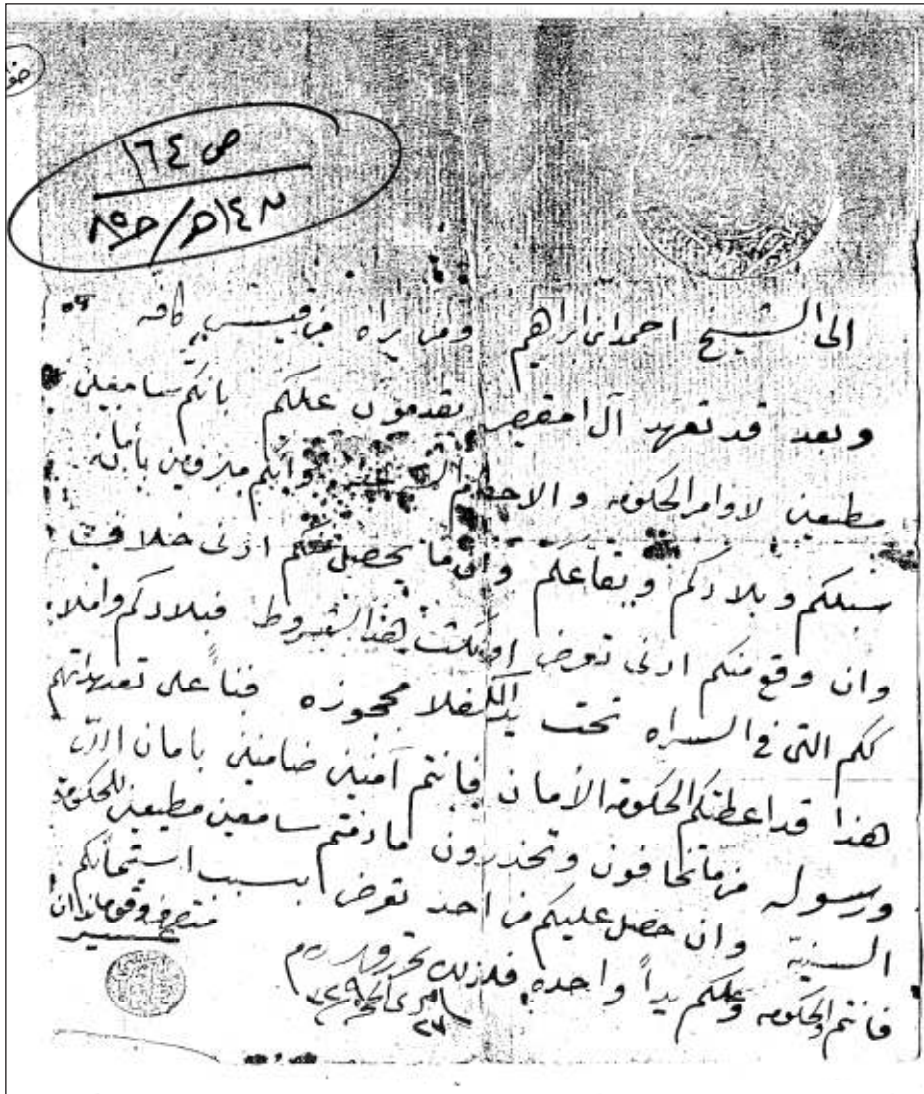 ص ١٦٤
الى الشيخ احمد ابن ابراهيم ومن يراه من قيس كافه
وبعد قد تعهد آل امقصر يقدمون عليكم بانكم سامعين
مطيعين لاوامر الحكومه و وانكم مبذولين بامان
سبلكم وبلادكم وبقاعكم وان ما يحصل منكم ادنى خلاف
وان وقع منكم ادنى تعرض او نكث هذا الشروط فبلادكم واملا
ككم التي في السراه تحت يد الكفلا محجوزه فبناً على تعهداتهم
هذا قد اعطتكم الحكومة الأمان فانتم آمنين ضامنين بامان الله
ورسوله من ما تخافون وتحذرون ما دمتم سامعين مطيعين للحكومة
السنيّة وان حصل عليكم من احد تعرض بسبب استيمانكم
فانتم والحكومه يداً واحده فلذلك تحرر
متصرف وقوماندان
عسير